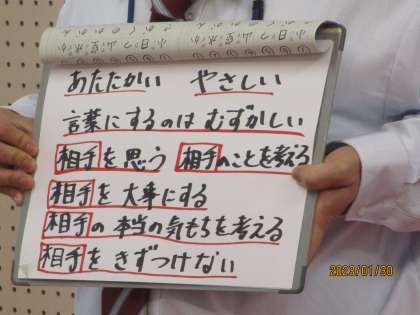 あたたかい やさしい
言葉にするのは むずかしい
相手を思う 相手のことを考える
相手を 大事にする
相手の 本当の気もちを考える
相手を きずつけない
2023/01/30